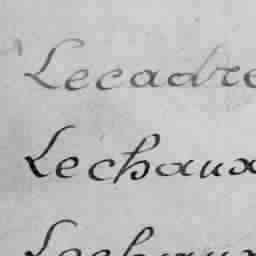 Lecadre
Lechaux